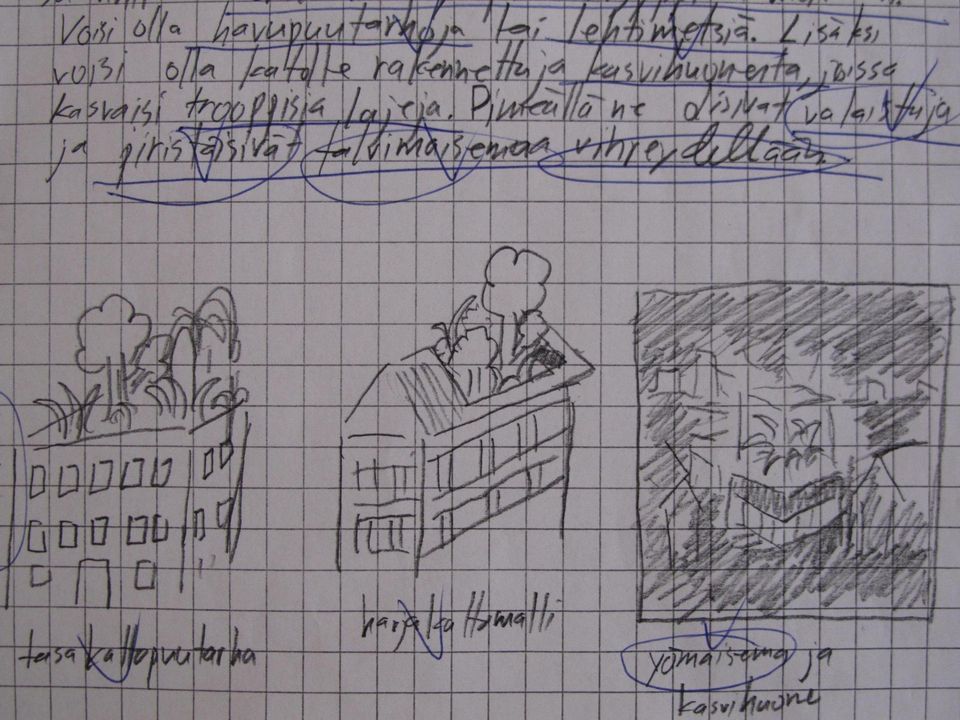 Voisi olla havupuutarhoja tai lehtimetsiä. Lisäksi
voisi olla katolle rakennettuja kasvihuoneita, joissa
kasvaisi trooppisia lajeja. Pimeällä ne olisivat valaistuja
ja piristäisivät talvimaisemaa vihreydellään
tasakattopuutarha
harjakattomalli
yömaisema ja
kasvihuone